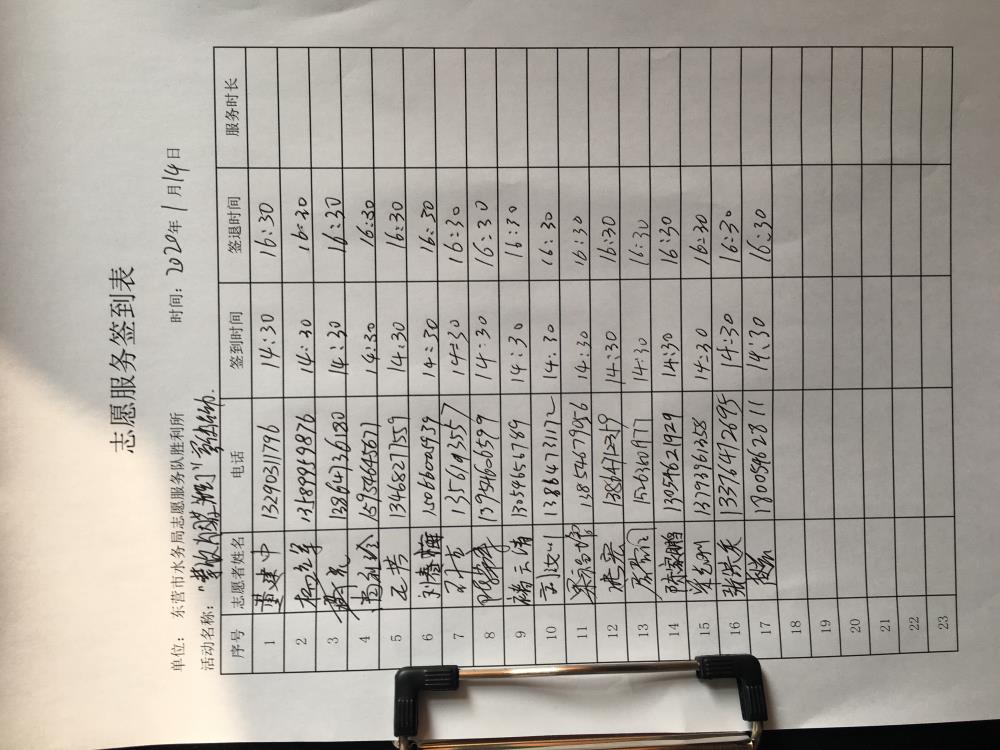 志愿服务签到表
单位： 东营市水务局志愿服务队胜利所 时间：2020年1月14日
活动名称：
序号 志愿者姓名 电话 签到时间 签退时间 服务时长
1 董建中 13290311796 14:30 16:30
2 13589989876 14:30 16:30
3 13864736180 14:30 16:30
4 15954645671 14:30 16:30
5 13468277559 14:30 16:30
6 刘春梅 15066000939 14:30 16:30
7 14:30 16:30
8 13954606599 14:30 16:30
9 13054656789 14:30 16:30
10 刘汝川 13864731172 14:30 16:30
11 13854679056 14:30 16:30
12 13864712219 14:30 16:30
13 15263801977 14:30 16:30
14 陈家鹏 13054621929 14:30 16:30
15 13793961358 14:30 16:30
16 13376472695 14:30 16:30
17 18005462811 14:30 16:30
18
19
20
21
22
23